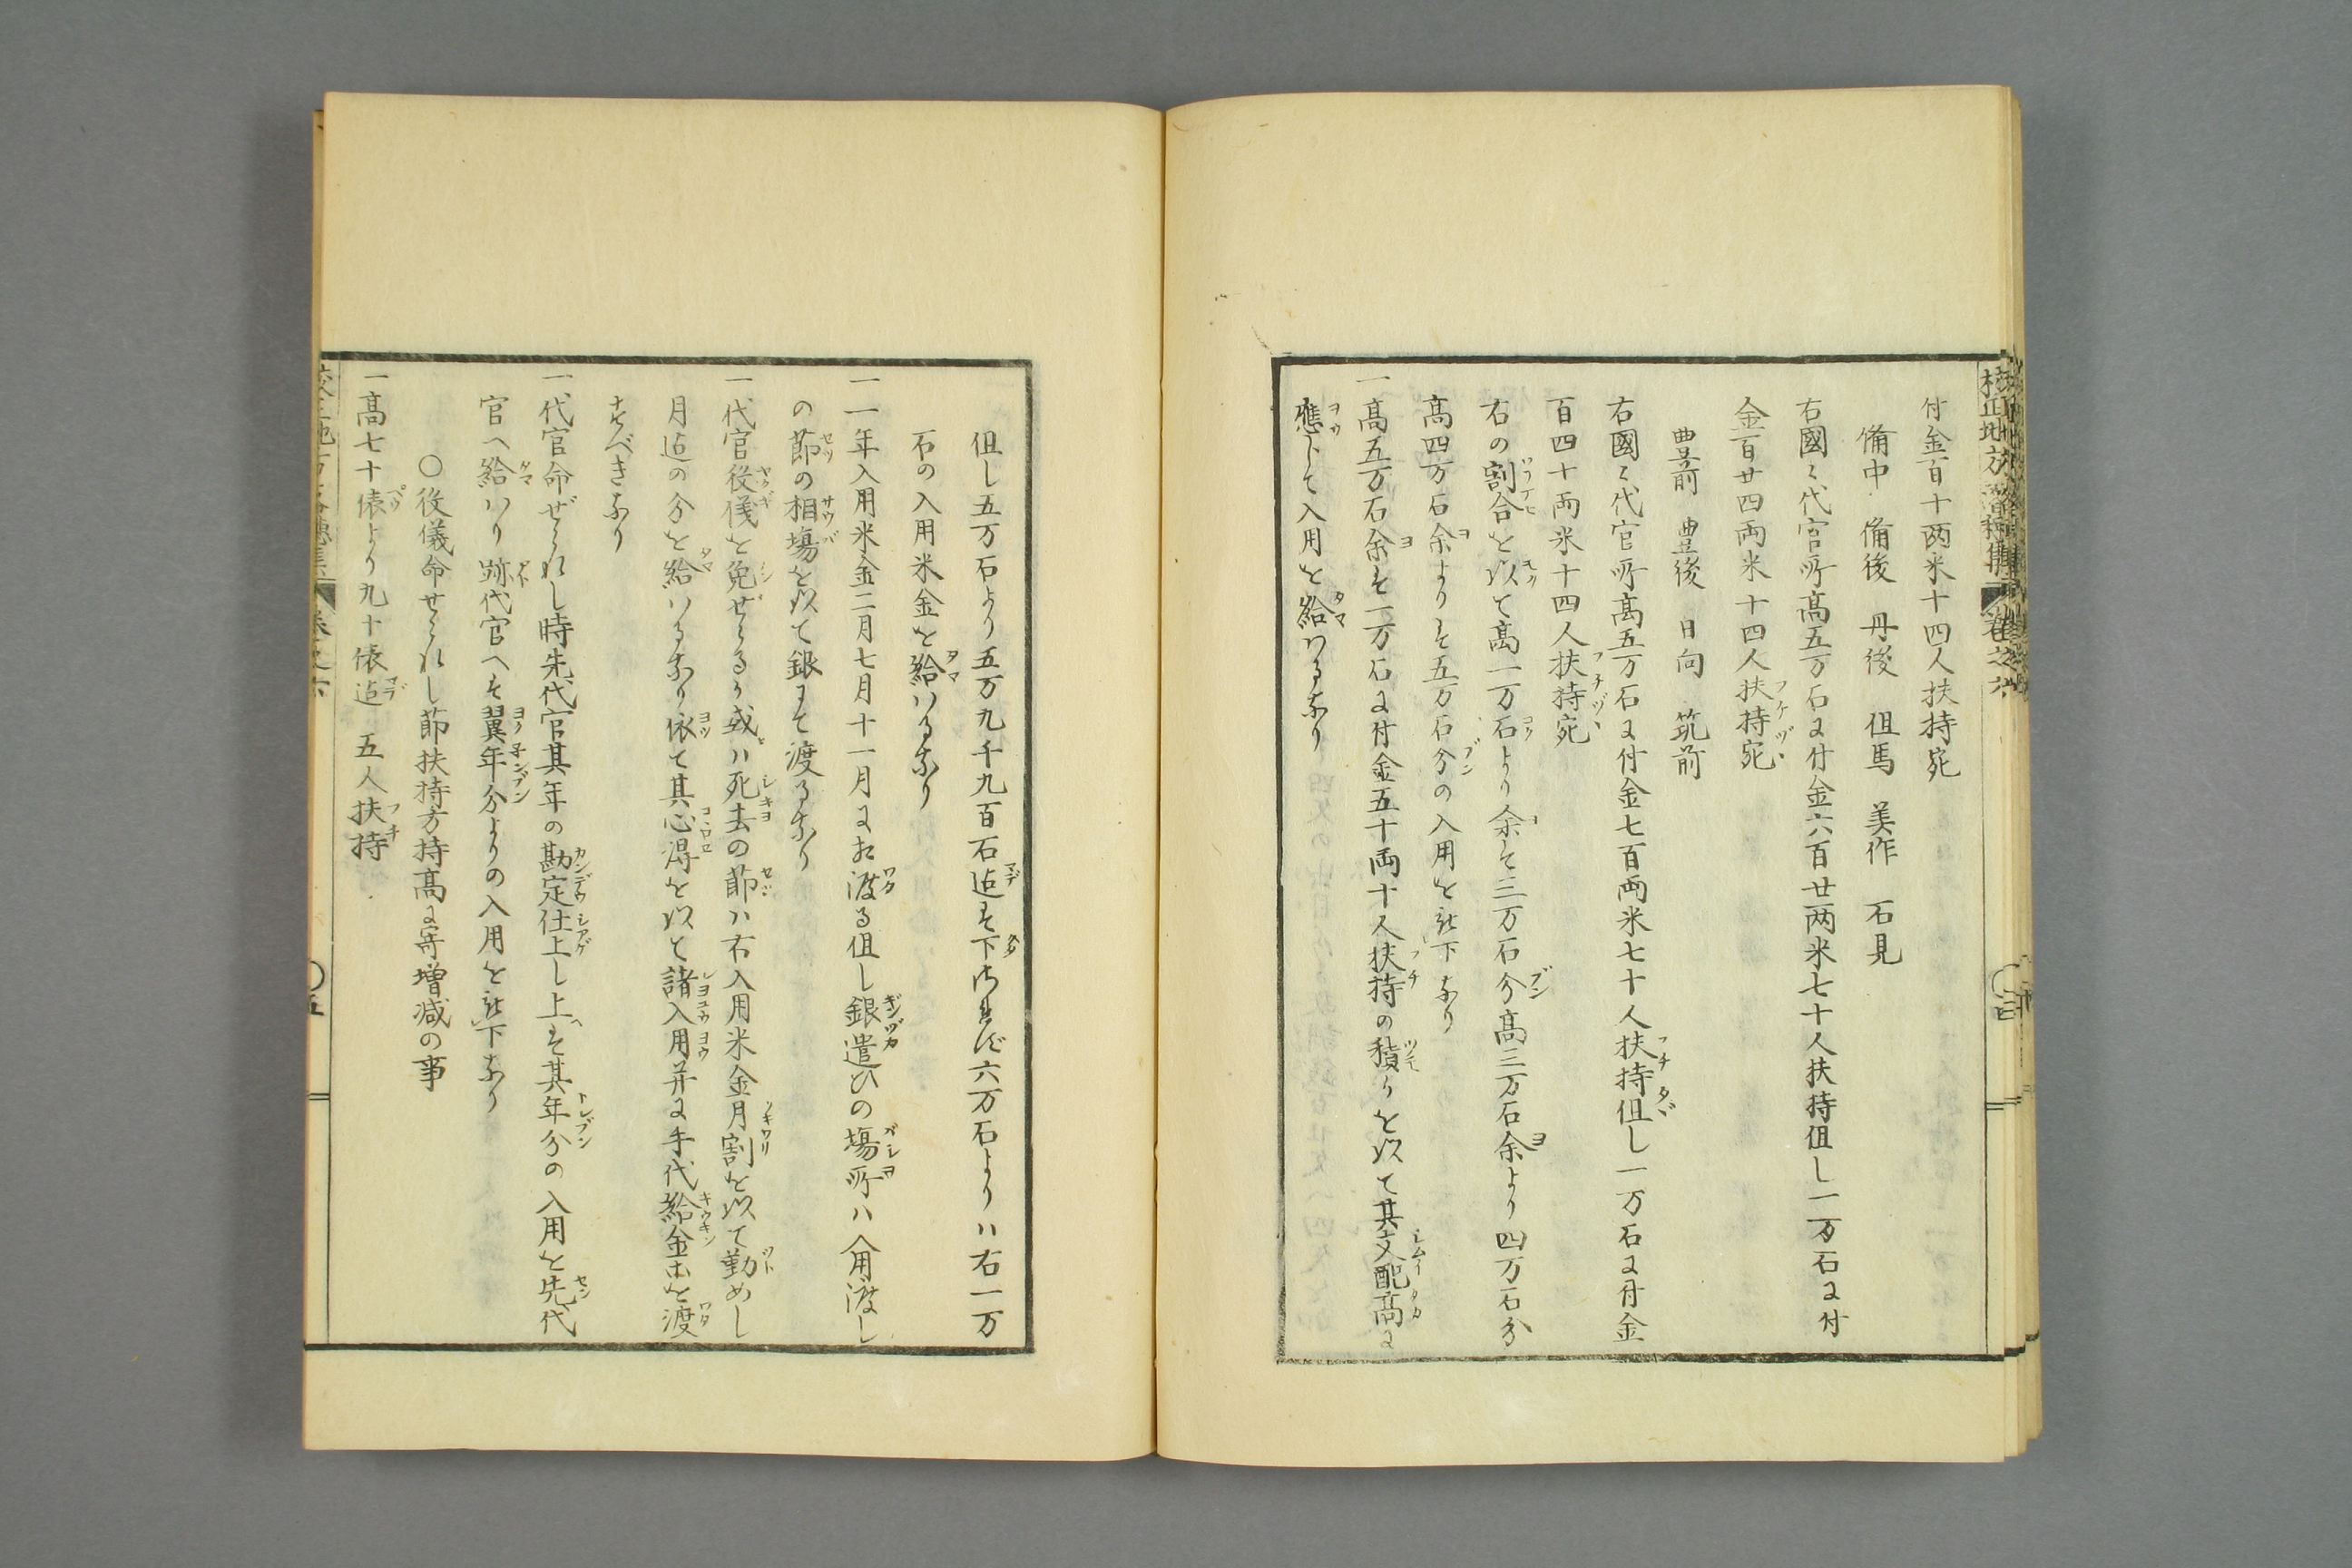 付金百十両米十四人扶持宛
備中　備後　丹後　但馬　美作　石見
右國々代官所高五万石に付金六百廿両米七十人扶持但し一万石に付
金百廿四両米十四人扶持宛
豊前　豊後　日向　筑前
右國々代官所高五万石に付金七百両米七十人扶持但し一万石に付金
百四十両米十四人扶持宛
右の割合を以て高一万石より余は三万石分高三万石余より四万石分
高四万石余よりは五万石分の入用を被下なり
一高五万石余は一万石に付金五十両十人扶持の積りを以て其支配高に
應して入用を給はるなり
但し五万石より五万九千九百石迠は下されず六万石よりハ右一万
石の入用米金を給はるなり
一一年入用米金二月七月十一月に相渡る但し銀遣ひの場所ハ入用渡し
の節の相場を以て銀にて渡るなり
一代官役儀を免ぜらるゝ或ハ死去の節ハ右入用米金月割を以て勤めし
月迠の分を給はるなり依て其心得を以て諸入用并に手代給金等を渡
すべきなり
一代官命ぜられし時先代官其年の勘定仕上し上は其年分の入用を先代
官へ給はり跡代官へは翌年分よりの入用を被下なり
〇役儀命せられし節扶持方持高に寄増減の事
一高七十俵より九十俵迠　五人扶持